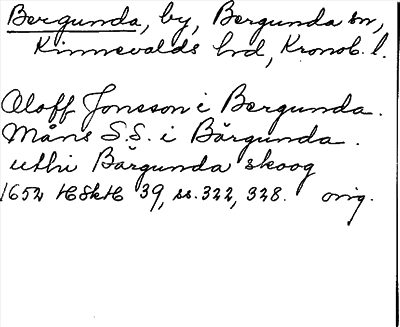 Bergunda, by, Bergunda sn,
Kinnevalds hd, Kronob. l.
Oloff Jonsson i Bergunda.
Måns S.S. i Bärgunda.
uthi Bärgunda skoog
1652 HSkH 39, ss. 322, 328. orig.